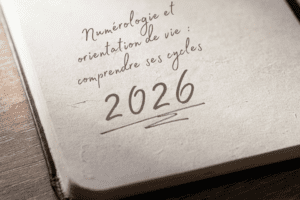 Numérologie et
orientation de vie :
comprendre ses cycles
2026